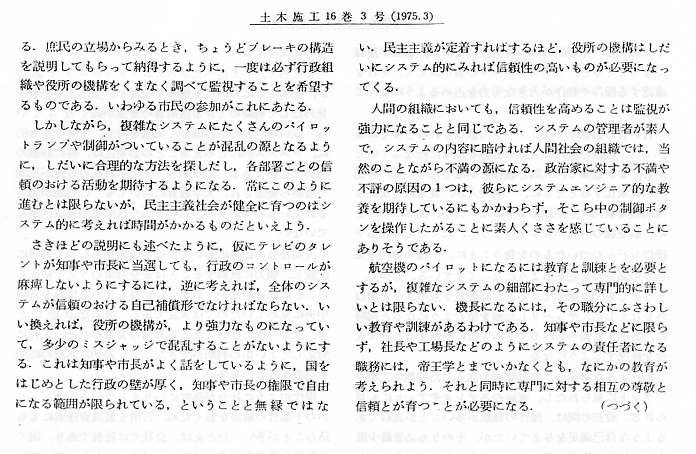 土木施工16巻3号(1975.3)
る．庶民の立場からみるとき，ちょうどブレーキの構造
を説明してもらって納得するように，一度は必ず行政組
織や役所の機構をくまなく調べて監視することを希望す
るものである．いわゆる市民の参加がこれにあたる．
しかしながら，複雑なシステムにたくさんのパイロッ
トランプや制御がついていることが混乱の源となるよう
に，しだいに合理的な方法を探しだし，各部署ごとの信
頼のおける活動を期待するようになる．常にこのように
進むとは限らないが，民主主義社会が健全に育つのはシ
ステム的に考えれば時間がかかるものだといえよう．
さきほどの説明にも述べたように，仮にテレビのタレ
ントが知事や市長に当選しても，行政のコントロールが
麻痺しないようにするには，逆に考えれば，全体のシス
テムが信頼のおける自己補償形でなければならない．い
い換えれば，役所の機構が，より強力なものになってい
て，多少のミスジャッジで混乱することがないようにす
る．これは知事や市長がよく話をしているように，国を
はじめとした行政の壁が厚く，知事や市長の権限で自由
になる範囲が限られている，ということと無縁ではな
い．民主主義が定着すればするほど，役所の機構はしだ
いにシステム的にみれば信頼性の高いものが必要になっ
てくる．
人間の組織においても，信頼性を高めることは監視が
強力になることと同じである．システムの管理者が素人
で，システムの内容に暗ければ人間社会の組織では，当
然のことながら不満の源になる．政治家に対する不満や
不評の原因の1つは，彼らにシステムエンジニア的な教
養を期待しているにもかかわらず，そこら中の制御ボタ
ンを操作したがることに素人くささを感じていることに
ありそうである．
航空機のパイロットになるには教育と訓練とを必要と
するが，複雑なシステムの細部にわたって専門的に詳し
いとは限らない．機長になるには，その職分にふさわし
い教育や訓練があるわけである．知事や市長などに限ら
ず，社長や工場長などのようにシステムの責任者になる
職務には，帝王学とまでいかなくとも，なにかの教育が
考えられよう．それと同時に専門に対する相互の尊敬と
信頼とが育つことが必要になる．（つづく）